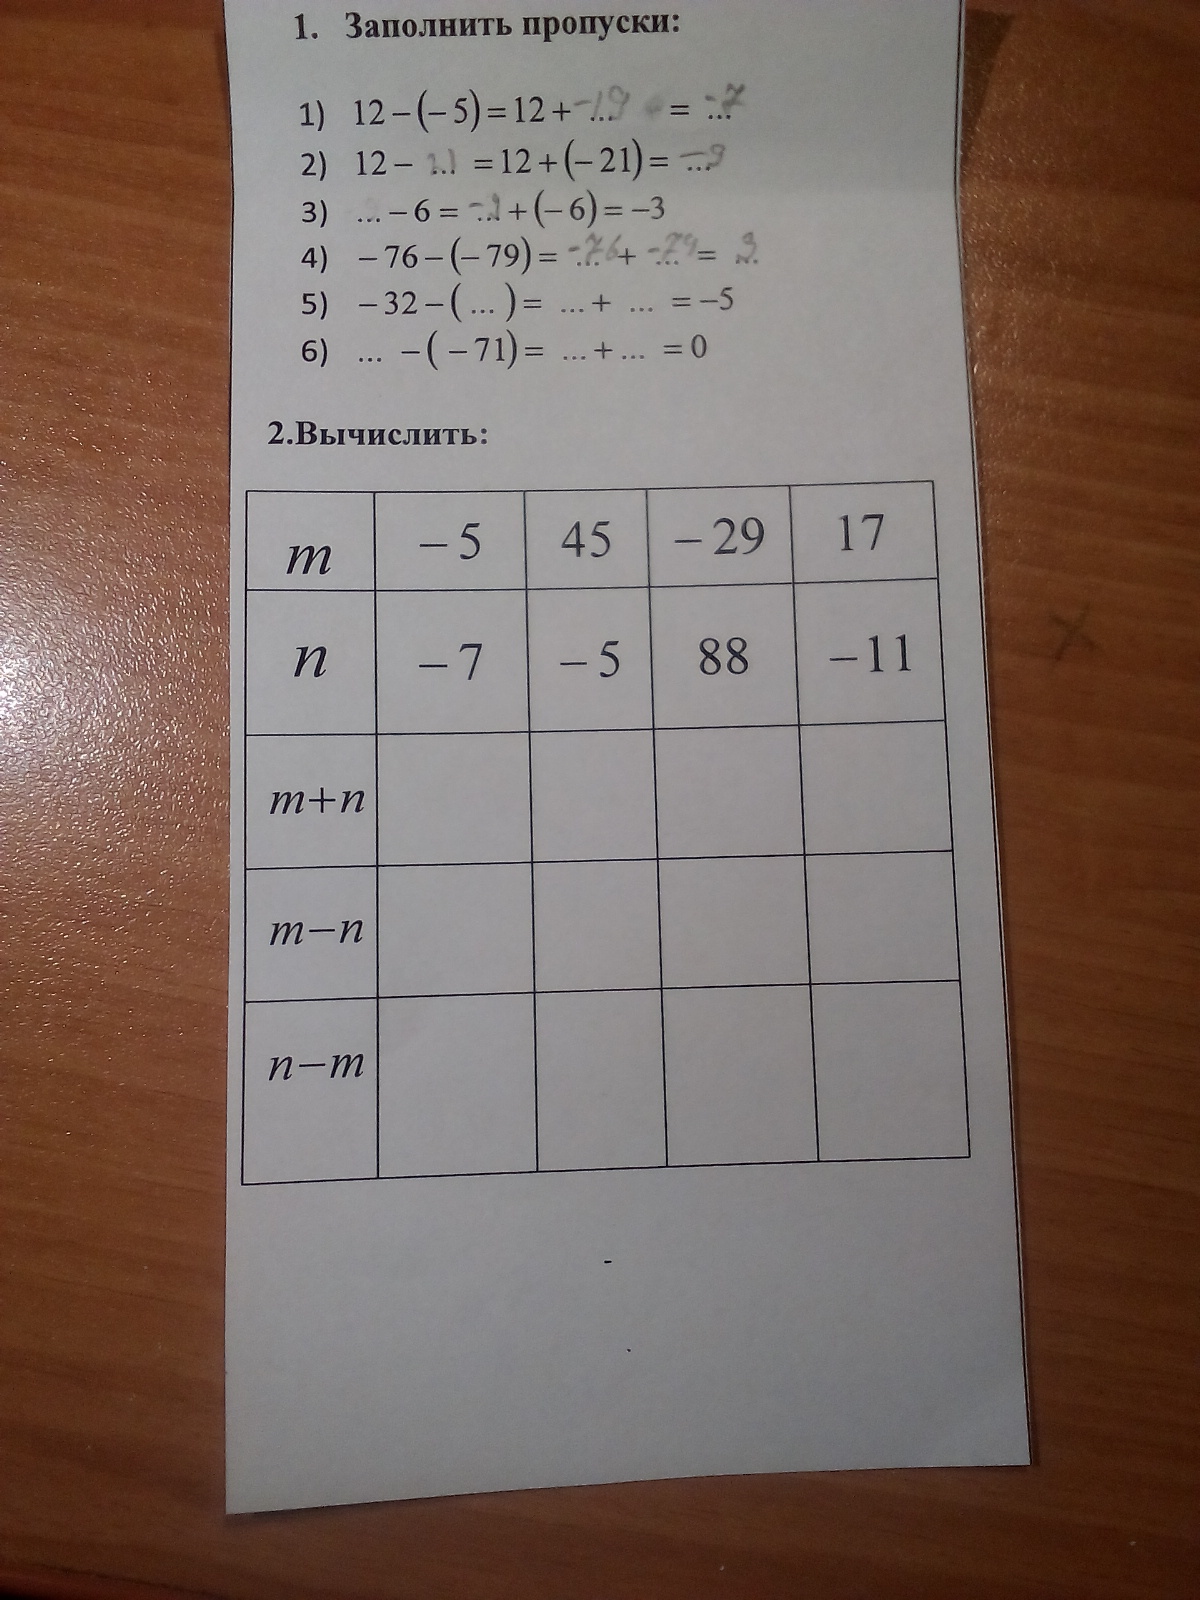 1. Заполнить пропуски:
1) 12 – (– 5) = 12 + ... = -7
2) 12 – ... = 12 + (– 21) = -9
3) ... – 6 = ... + (– 6) = –3
4) – 76 – (– 79) = -76 + -79 = 3
5) – 32 – ( ... ) = ... + ... = –5
6) ... – ( – 71) = ... + ... = 0
2.Вычислить:
m – 5 45 – 29 17
n – 7 – 5 88 – 11
m+n
m–n
n–m